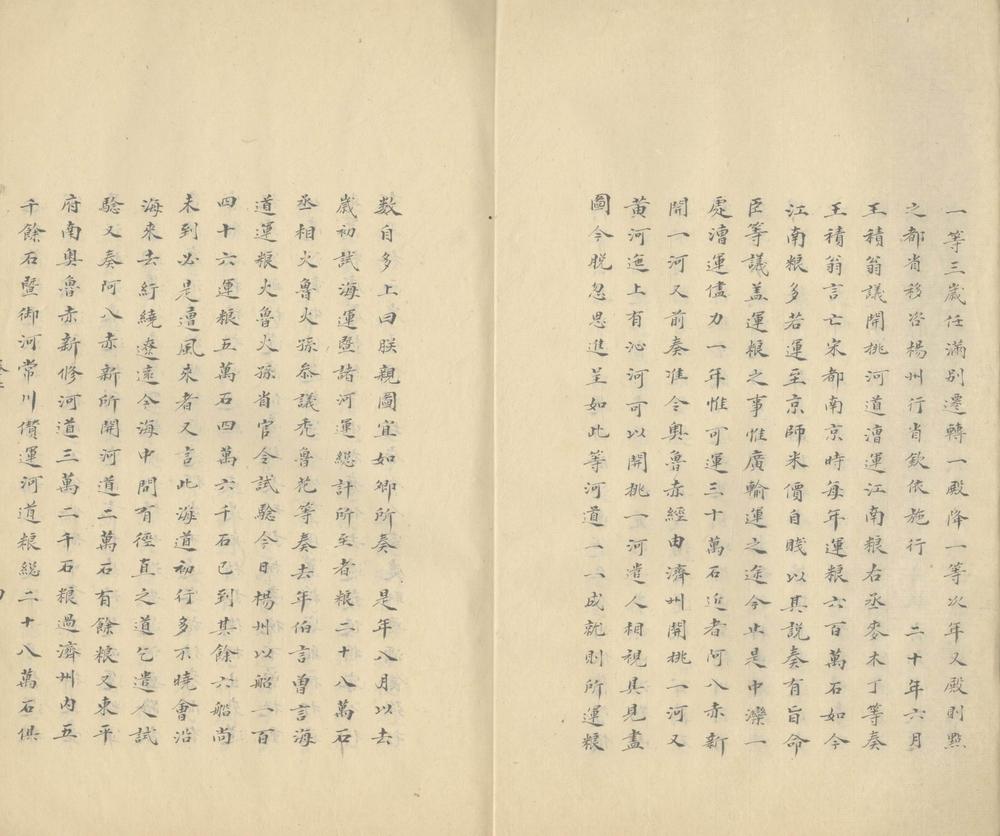 一等三歲任滿別遷轉一殿降一等次年又殿則黜
之都省移咨楊州行省欽依施行　二十年六月
王積翁議開挑河道漕運江南粮右丞麥木丁等奏
王積翁言亡宋都南京時每年運粮六百萬石如今
江南粮多若運至京師米價自賤以其說奏有旨命
臣等議盖運粮之事惟廣輸運之途今止是中灤一
處漕運儘力一年惟可運三十萬石近者阿八赤新
開一河又前奏准令奥魯赤經由濟州開挑一河又
黄河迤上有沁河可以開挑一河遣人相視具見畫
圖今脱忽思進呈如此等河道一一成就則所運粮
數自多上曰朕親圖宜如卿所奏　是年八月以去
歲初試海運曁諸河運総計所至者粮二十八萬石
丞相火魯火孫叅議禿魯花等奏去年伯言曽言海
道運粮火魯火孫省官令試驗今日楊州以船一百
四十六運粮五萬石四萬六千石已到其餘六船尚
未到必是遭風來者又言此海道初行多不曉會沿
海來去紆繞遼遠今海中問有徑直之道乞遣人試
驗又奏阿八赤新所開河道二萬石有餘粮又東平
府南奥魯赤新修河道三萬二千石粮過濟州内五
千餘石曁御河常川儹運河道粮総二十八萬石俱